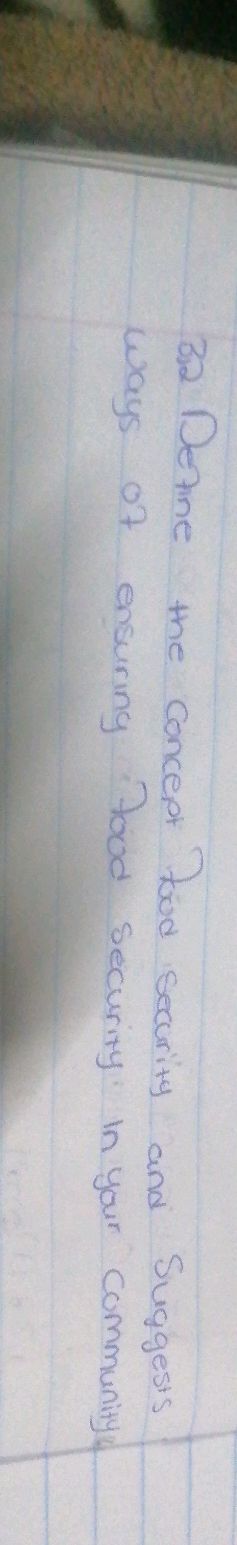 3.2 Define the concept food security and Suggests
ways of ensuring food security in your community